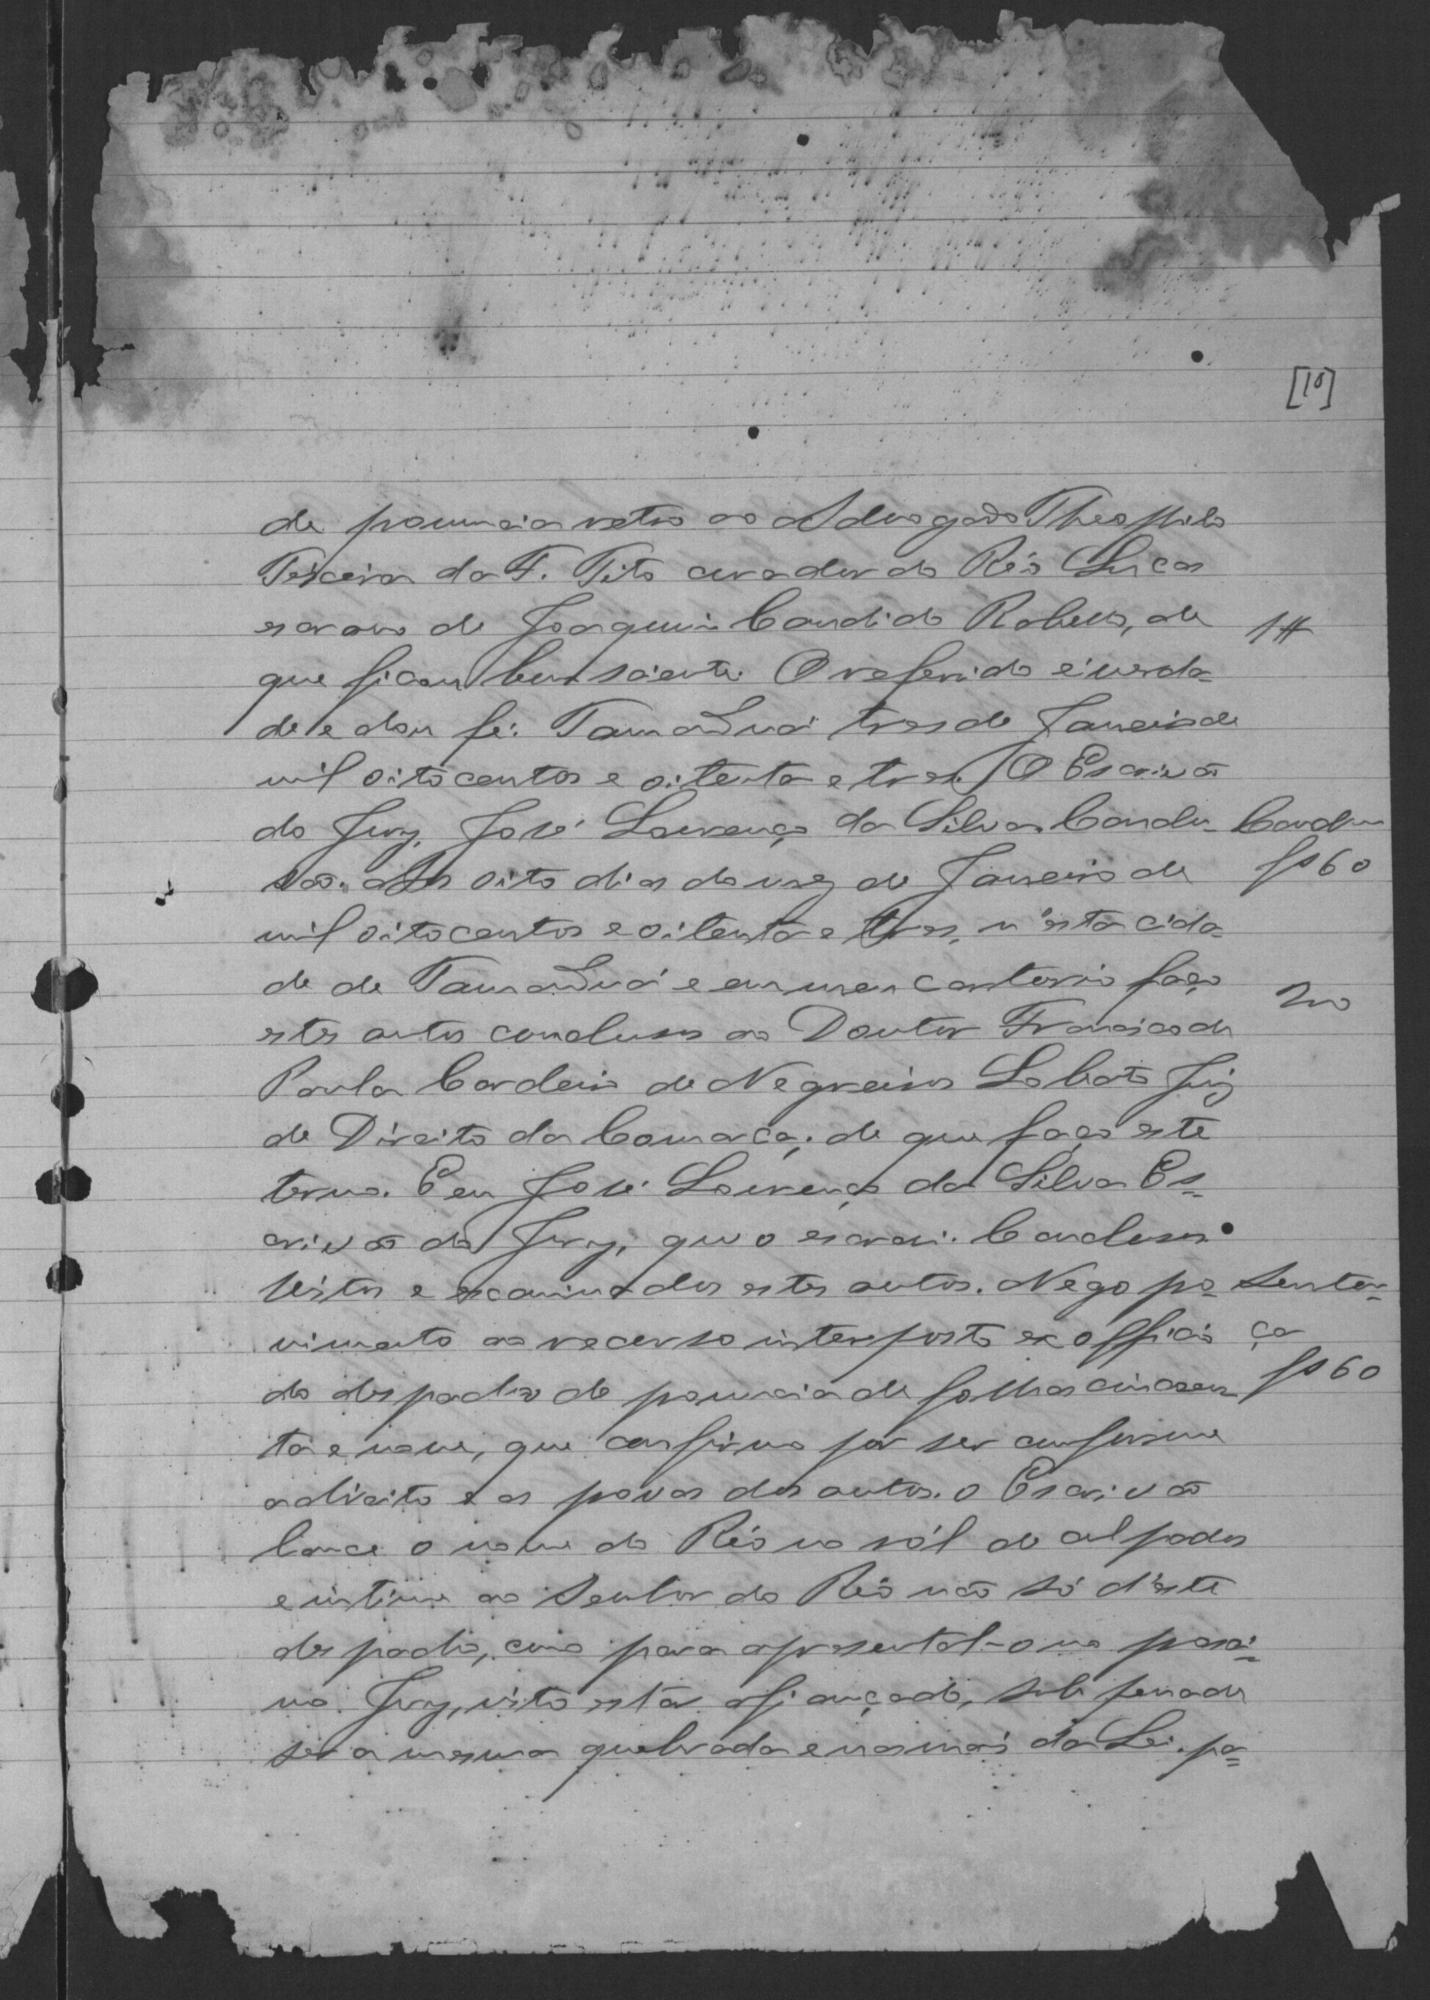 [10]
de pronuncia retro ao Advogado Theophilo
Teixeira da F. Tito curador do Réo Lucas
escravo de Joaquim Candido Rabello, de
1#
que ficou bem sciente. O referido é verda=
de e dou fé. Tamanduá tres de Janeiro de
mil oito centos e oitenta e tres. O Escrivão
do Jury, José Lourenço da Silva. Conclu-
Conclu
são. Aos oito dias do mez de Janeiro de
fs 60
mil oito centos e oitenta e tres, n'esta cida=
de de Tamanduá e em meu cartorio faço
200
estes autos conclusos ao Doutor Francisco de
Paula Cordeiro de Negreiros Lobato Juiz
de Direito da Comarca; de que faço este
termo. E eu José Lourenço da Silva Es=
crivão do Jury, que o escrevi. Conclusos.
Vistos e examinados estes autos. Nego pro=
Senten=
vimento ao recurso interposto ex officio
ça
do despacho de pronuncia de folhas cincoen
fs 60
ta e nove, que confirmo por ser conforme
a direito e as provas dos autos. O Escrivão
lance o nome do Réo no ról de culpados
e intime ao Senhor do Réo não só d'este
despacho, como para apresental-o no proxi=
mo Jury, visto estar afiançado, sob pena de
ser a mesma quebrada e nas mais da Lei. pa=